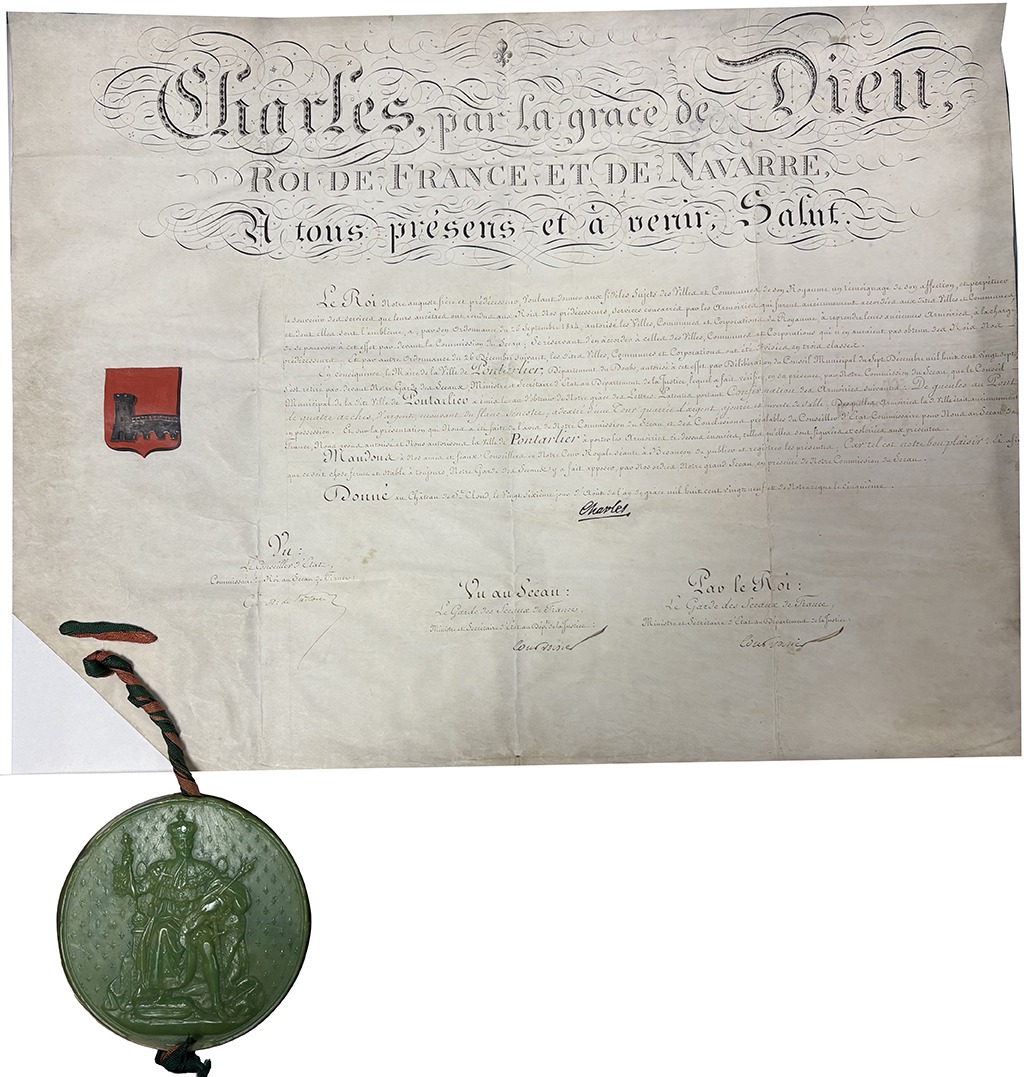 Charles, par la grace de Dieu,
ROI DE FRANCE ET DE NAVARRE,
A tous présens et à venir, Salut.
Le Roi Notre auguste frère et prédécesseur, voulant donner aux fidèles Sujets des Villes et Communes de son Royaume un témoignage de son affection, et perpétuer
le souvenir des services que leurs ancêtres ont rendus aux Rois Nos prédécesseurs, services consacrés par les Armoiries qui furent anciennement accordées aux dites Villes et Communes,
et dont elles sont l'emblème, a, par son Ordonnance du 26 Septembre 1814, autorisé les Villes, Communes et Corporations du Royaume à reprendre leurs anciennes Armoiries, à la charge
de se pourvoir à cet effet par devant la Commission du Sceau; Se réservant d'en accorder à celles des Villes, Communes et Corporations qui n'en auraient pas obtenu des Rois Nos
prédécesseurs. Et par autre Ordonnance du 26 Décembre suivant, les dites Villes, Communes et Corporations ont été divisées en trois classes.
En conséquence, le Maire de la Ville de Pontarlier, Département du Doubs, autorisé à cet effet par Délibération du Conseil Municipal du Sept Décembre mil huit cent vingt sept,
s'est retiré par devant Notre Garde des Sceaux Ministre et Secrétaire d'État au Département de la Justice, lequel a fait vérifier, en sa présence, par Notre Commission du Sceau, que le Conseil
Municipal de la dite Ville de Pontarlier a émis le vœu d'obtenir de Notre grâce des Lettres Patentes portant Confirmation des Armoiries suivantes: De gueules au Pont
de quatre arches d'argent, mouvant du flanc senestre, adextré d'une Tour quarrée d'argent, ajourée ouverte de sable; Desquelles Armoiries la dite Ville était anciennement en
possession. Et sur la présentation qui Nous a été faite de l'avis de Notre Commission du Sceau et des Conclusions préalables du Conseiller d'État Commissaire pour Nous au Sceau de
Nous avons autorisé et Nous autorisons la Ville de Pontarlier à porter les Armoiries ci dessus énoncées, telles qu'elles sont figurées et coloriées aux présentes.
Mandons à Nos amés et féaux Conseillers en Notre Cour Royale séante à Besançon de publier et registrer les présentes: Car tel est notre bon plaisir: Et afin
que ce soit chose ferme et stable à toujours, Notre Garde des Sceaux y a fait apposer, par Nos ordres, Notre grand Sceau, en présence de Notre Commission du Sceau.
Donné au Château de St. Cloud, le Vingt Sixième jour d'Août de l'an de grace mil huit cent vingt neuf et de Notre règne le Cinquième.
Charles
Vu:
Le Conseiller d'État,
Commissaire du Roi au Sceau de France:
Vu au Sceau:
Le Garde des Sceaux de France,
Ministre et Secrétaire d'État au Dépt. de la Justice:
Courvoisier
Par le Roi:
Le Garde des Sceaux de France,
Ministre et Secrétaire d'État au Département de la Justice:
Courvoisier